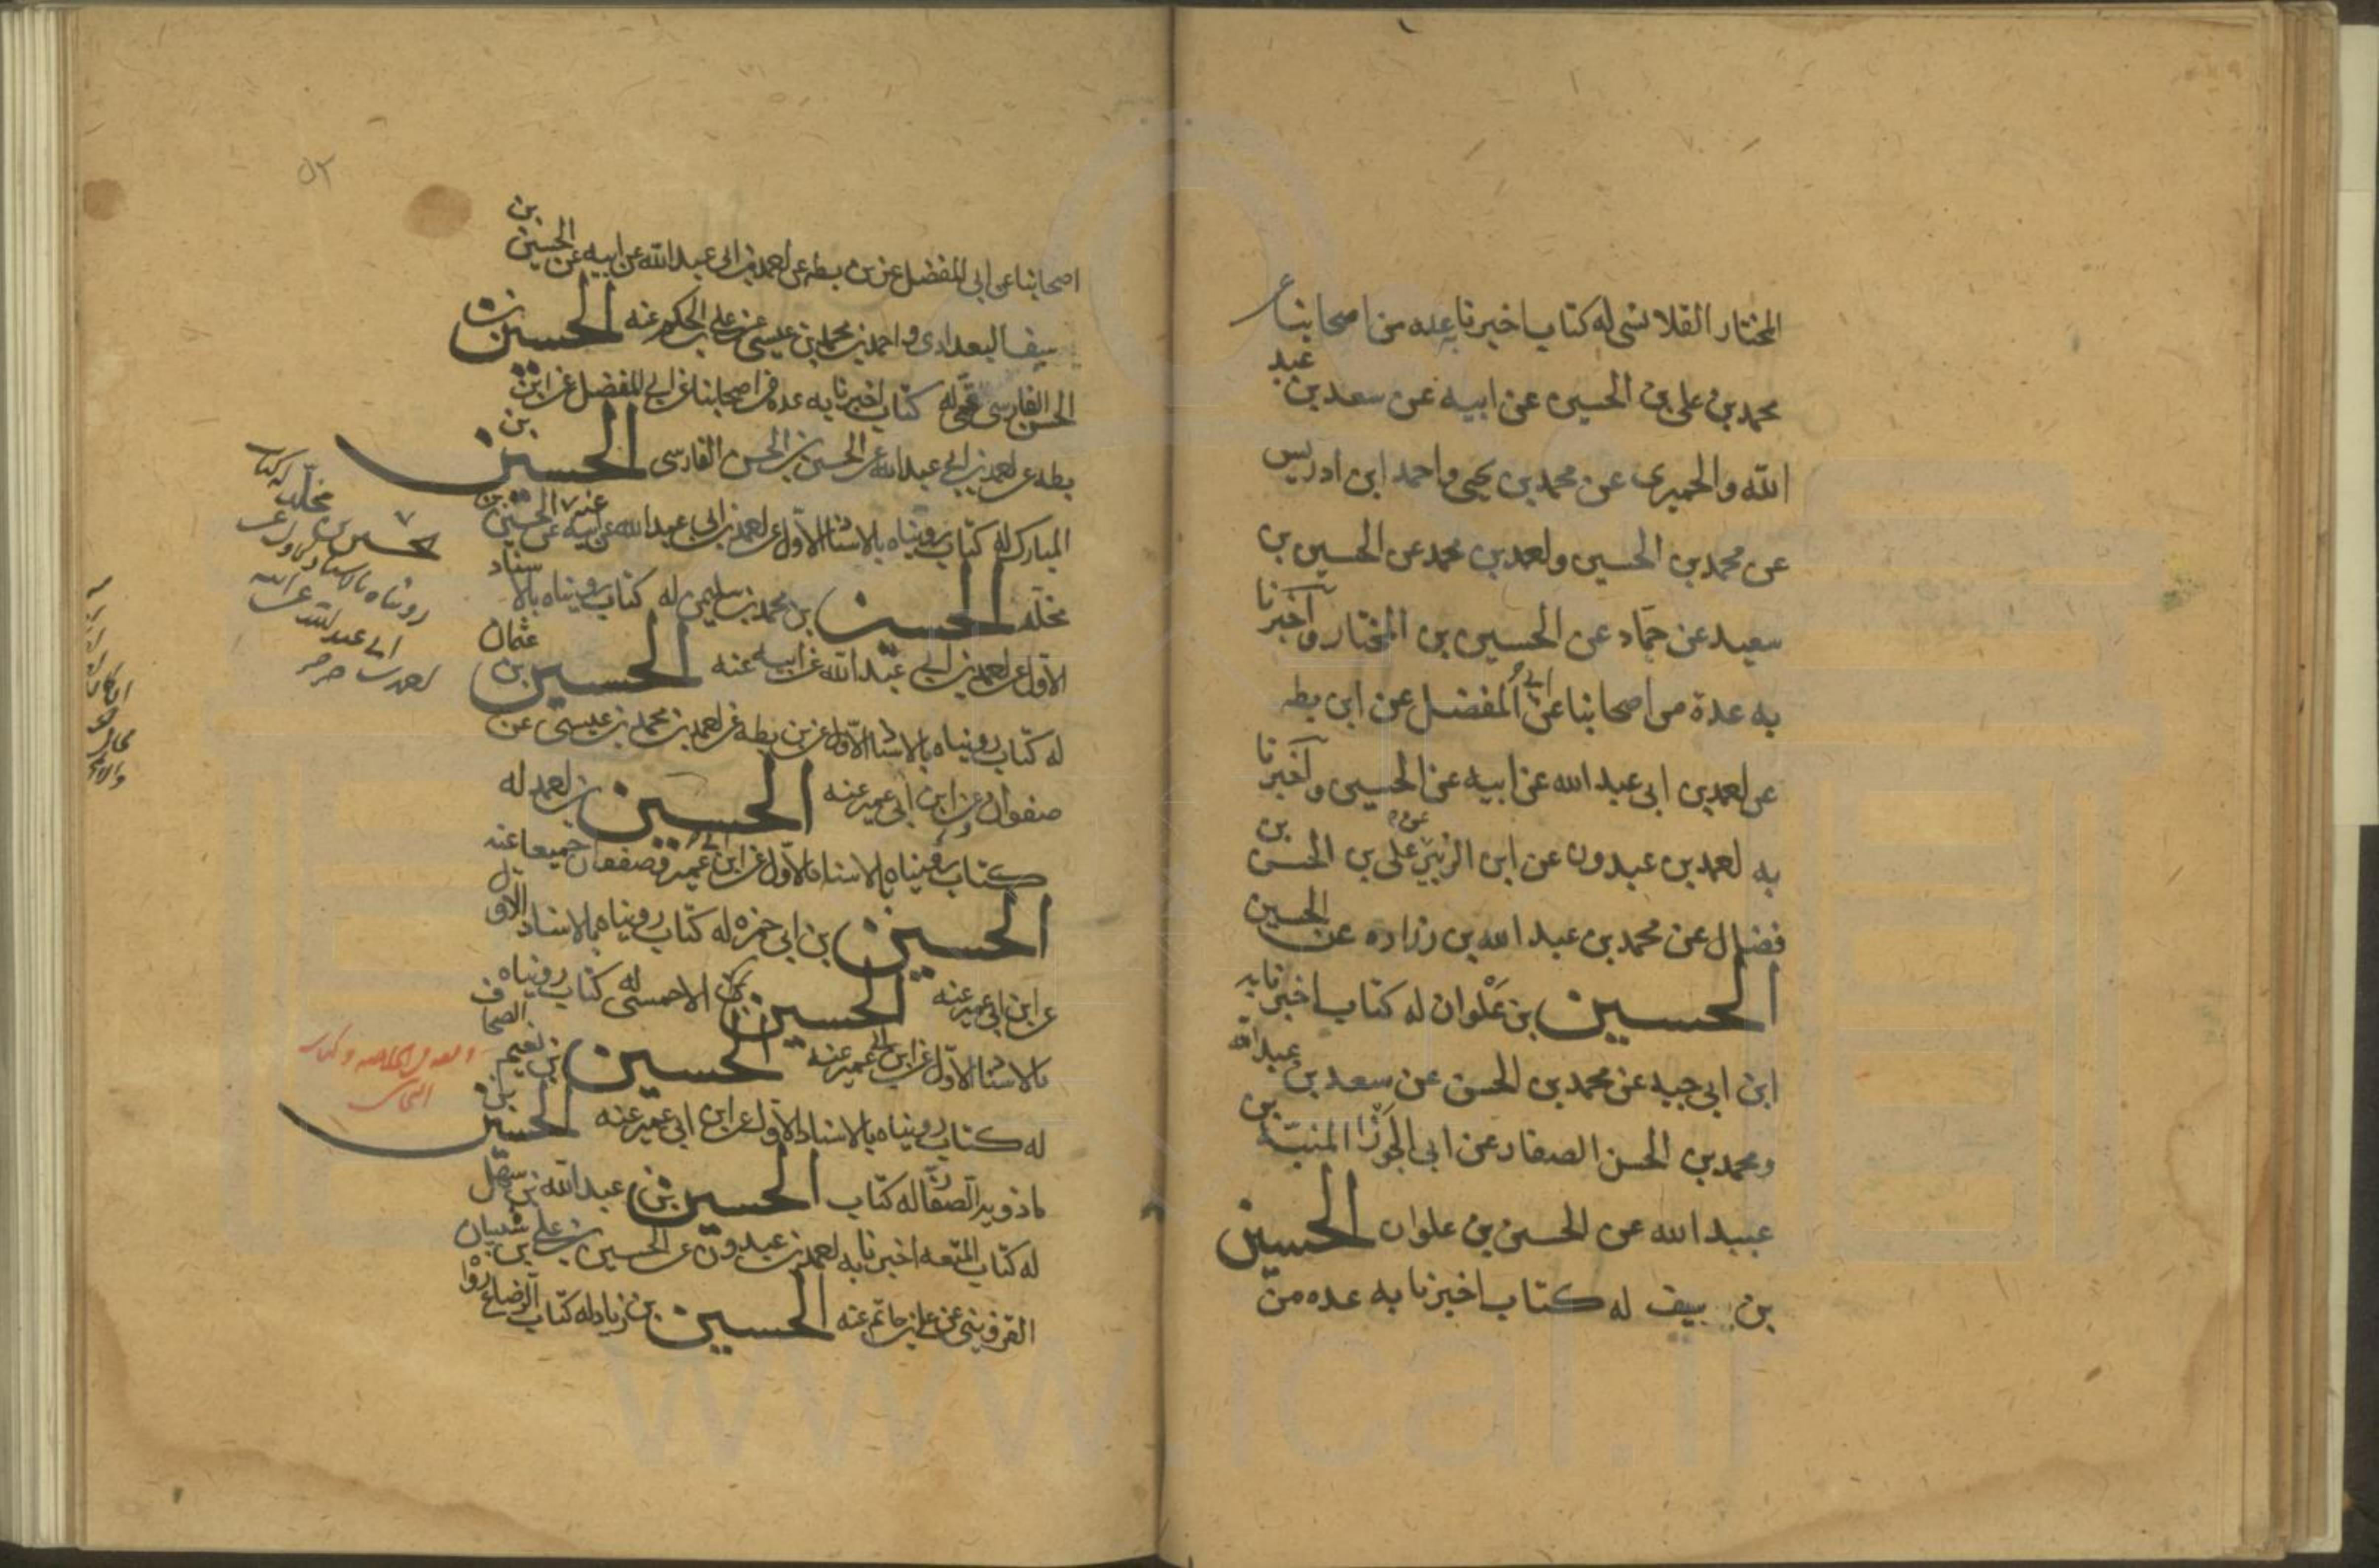 المختار القلانسى له كتاب اخبرنا عده من اصحابنا عن
محمد بن على بن الحسين عن ابيه عن سعد بن عبد
الله والحميرى عن محمد بن يحيى واحمد ابن ادريس
عن محمد بن الحسين واحمد بن محمد عن الحسين بن
سعيد عن حماد عن الحسين بن المختار وآخبرنا
به عدة من اصحابنا عن ابى المفضل عن ابن بطه
عن احمد بن ابى عبد الله عن ابيه عن الحسين وآخبرنا
به احمد بن عبدون عن ابن الزبير عن على بن الحسن بن
فضال عن محمد بن عبد الله بن زراره عن الحسين
الحسين بن عَلْوان له كتاب اخبرنا به
ابن ابى جيد عن محمد بن الحسن عن سعد بن عبد الله
ومحمد بن الحسن الصفار عن ابى الجوزا المنبه بن
عبيد الله عن الحسين بن علوان الحسين
بن سيف له كتاب اخبرنا به عده من
٥٢
اصحابنا عن ابى المفضل عن بن بطه عن احمد بن ابى عبد الله عن ابيه عن الحسين بن
سيف البغدادى واحمد بن محمد بن عيسى عن على بن الحكم عنه الحسين بن
الحسن الفارسى قمى له كتاب اخبرنا به عده من اصحابنا عن ابى المفضل عن ابن
بطه عن احمد بن ابى عبد الله عن الحسين بن الحسن الفارسى الحسين بن
المبارك له كتاب رويناه بالاسناد الاول عن احمد بن ابى عبد الله عن ابيه عنه الحسين بن
مخلد الحسين بن محمد بن سليمن له كتاب رويناه بالاسناد
الاول عن احمد بن ابى عبد الله عن ابيه عنه الحسين بن عثمان
له كتاب رويناه بالاسناد الاول عن بن بطه عن احمد بن محمد بن عيسى عن
صفوان وعن ابن ابى عمير عنه الحسين بن احمد له
كتاب رويناه بالاسناد الاول عن ابن ابى عمير وصفوان جميعا عنه
الحسين بن ابى حمزه له كتاب رويناه بالاسناد الاول
عن ابن ابى عمير عنه الحسين بن الاحمسى له كتاب رويناه
بالاسناد الاول عن ابن ابى عمير عنه الحسين بن نعيم الصحاف
له كتاب رويناه بالاسناد الاول عن ابن ابى عمير عنه الحسين بن
شاذويه الصفار له كتاب الحسين بن عبد الله بن سهل
له كتاب المتعه اخبرنا به احمد بن عبدون عن الحسين بن على بن شيبان
القزوينى عن على بن حاتم عنه الحسين بن زياد له كتاب الرضاع
حسين بن مخلد له كتاب
رويناه بالاسناد الاول عن
احمد بن ابى عبد الله عن
www.ical.ir